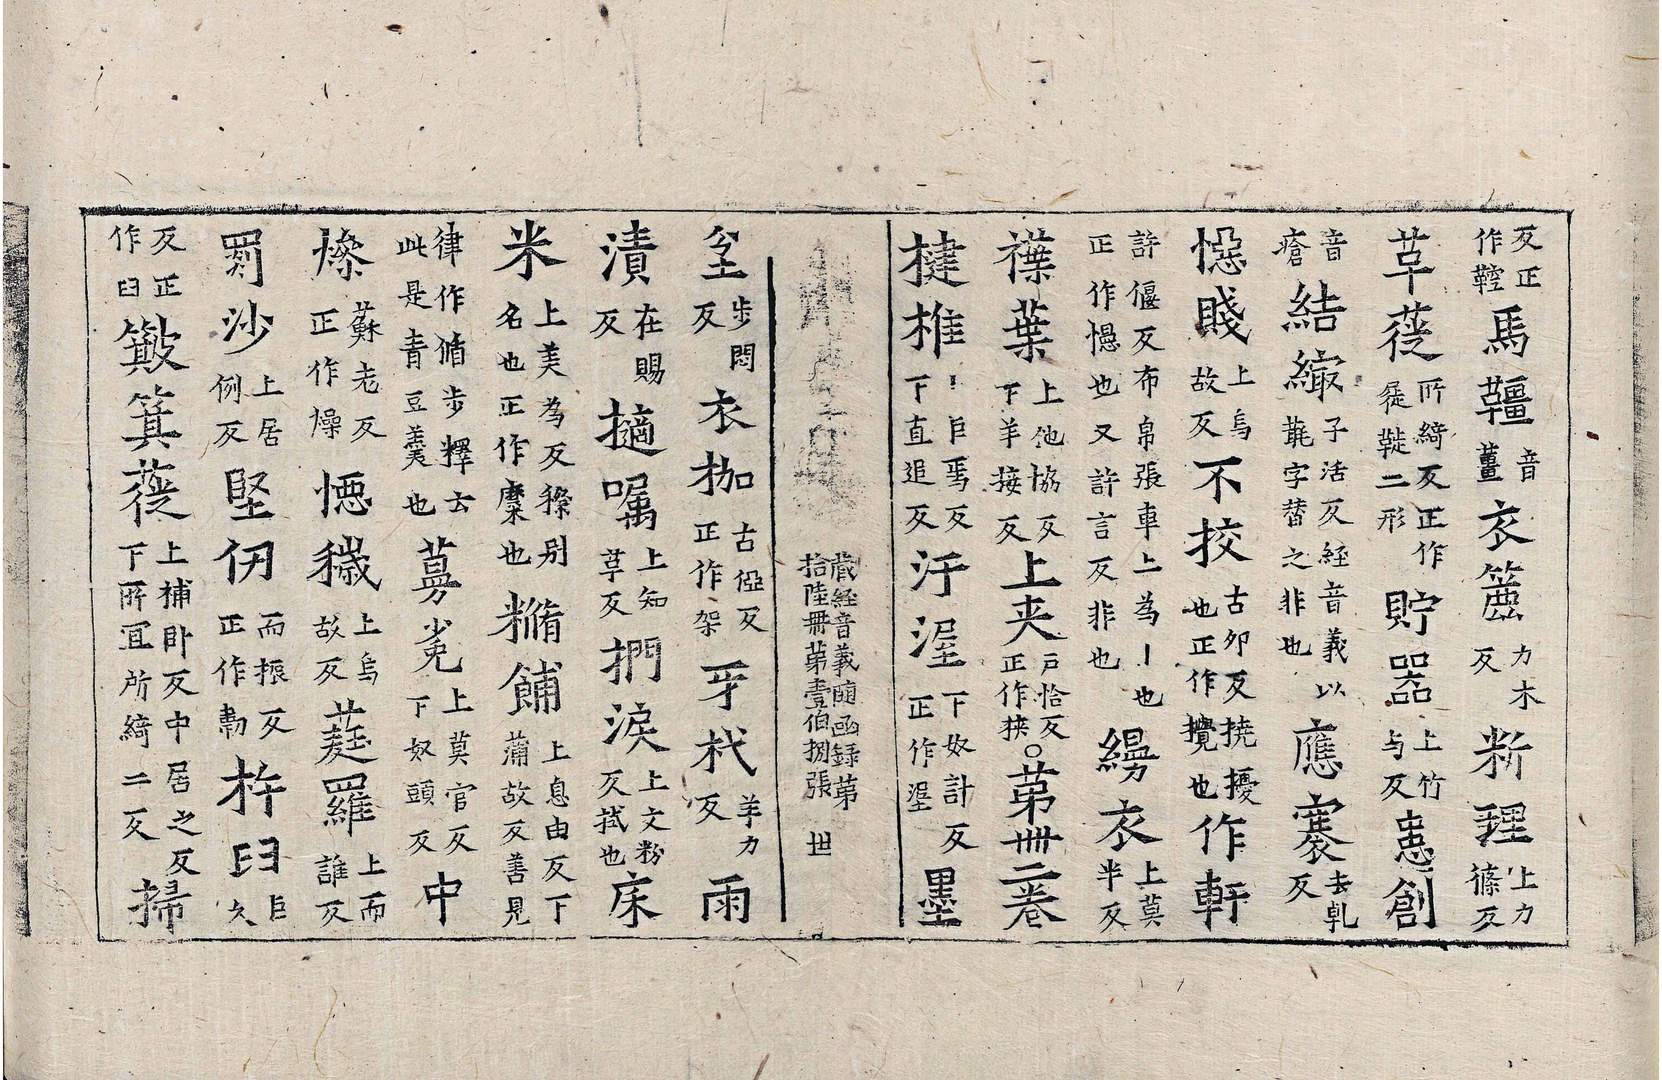 反正作鞚馬韁音薑衣簏力木反断理上力𥱊反
草蓰所綺反正作屣鞑二形貯器上竹与反恚創
音瘡結繓子活反経音義以毻字替之非也應褰去乹反
㦣賤上烏故反不挍古夘反撓擾也正作攪也作軒
許偃反布帛張車上為丨也正作幰也又許言反非也縵衣上莫半反
襟葉上他協反下羊接反上夾戸恰反正作狹○第卌二卷
揵椎丨巨焉反下直追反汙湼下奴計反正作埿墨
藏経音義随函録第拾陸冊第壹伯捌張　世
坌步悶反衣枷古俹反正作架牙杙羊力反雨
漬在賜反擿嘱上知革反捫淚上文粉反拭也床
米上美為反穄别名也正作穈也糋餔上息由反下蒲故反善見
律作脩步釋云此是青豆羹也蔓菟上莫官反下奴頭反中
燥蘇老反正作燥㦣穢上烏故反蕤羅上而誰反
罽沙上居例反堅仞而振反正作肕杵臼巨久
反正作臼簸箕蓰上補卧反中居之反下所冝所綺二反掃